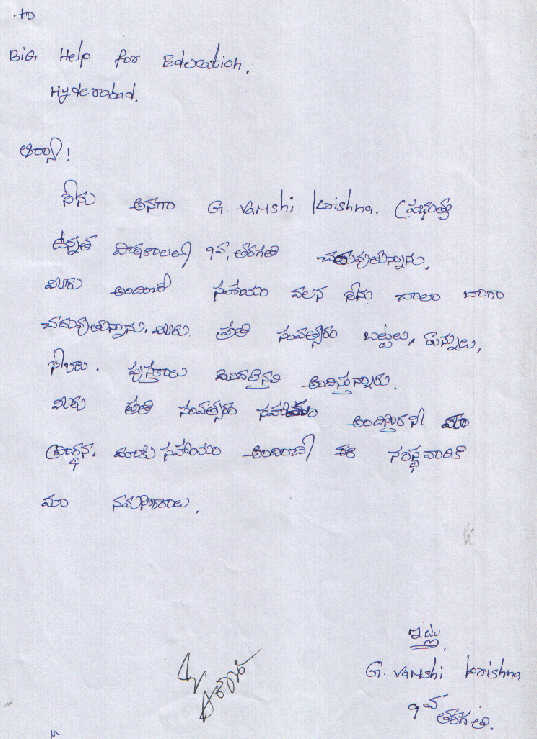 to
BiG Help for Education.
Hyderabad.
ఆర్యా!
నేను అనగా G. vamshi krishna. ప్రభుత్వ
ఉన్నత పాఠశాలలో 9వ, తరగతి చదువుతున్నాను.
మీరు అందించే సహాయం వలన నేను చాలా బాగా
చదువుతున్నాను. మీరు ప్రతి సంవత్సరం బట్టలు, పెన్నులు,
పుస్తకాలు అందిస్తున్నారు.
మీరు ప్రతి సంవత్సరం సహాయం అందిస్తారని మా
ప్రార్థన. మాకు సహాయం అందించే ఈ సంస్థవారికి
మా నమస్కారాలు.
ఇట్లు
G. vamshi krishna
9వ తరగతి.